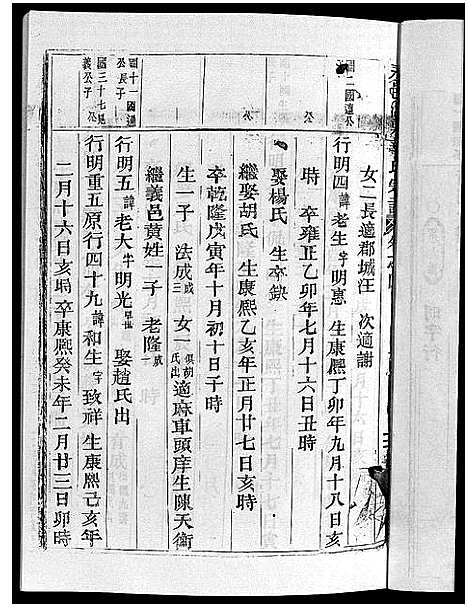 女二長適郡城汪 次適謝
國二國遠公
行明四諱老生字明惠 生康熙丁卯年九月十八日亥
時 卒雍正乙卯年七月十六日丑時
娶楊氏 生卒缺
繼娶胡氏 生康熙乙亥年正月廿七日亥時
卒乾隆戊寅年十月初十日子時
生一子 法成 女一俱前氏出適麻車頭庠生陳天衛
繼義邑黃姓一子 老隆
公長子
行明五諱老大字明光早世 娶趙氏出
國三十七
義公子
行明重五原行四十九諱和生字致祥 生康熙己亥年
二月十六日亥時 卒康熙癸未年二月廿三日卯時